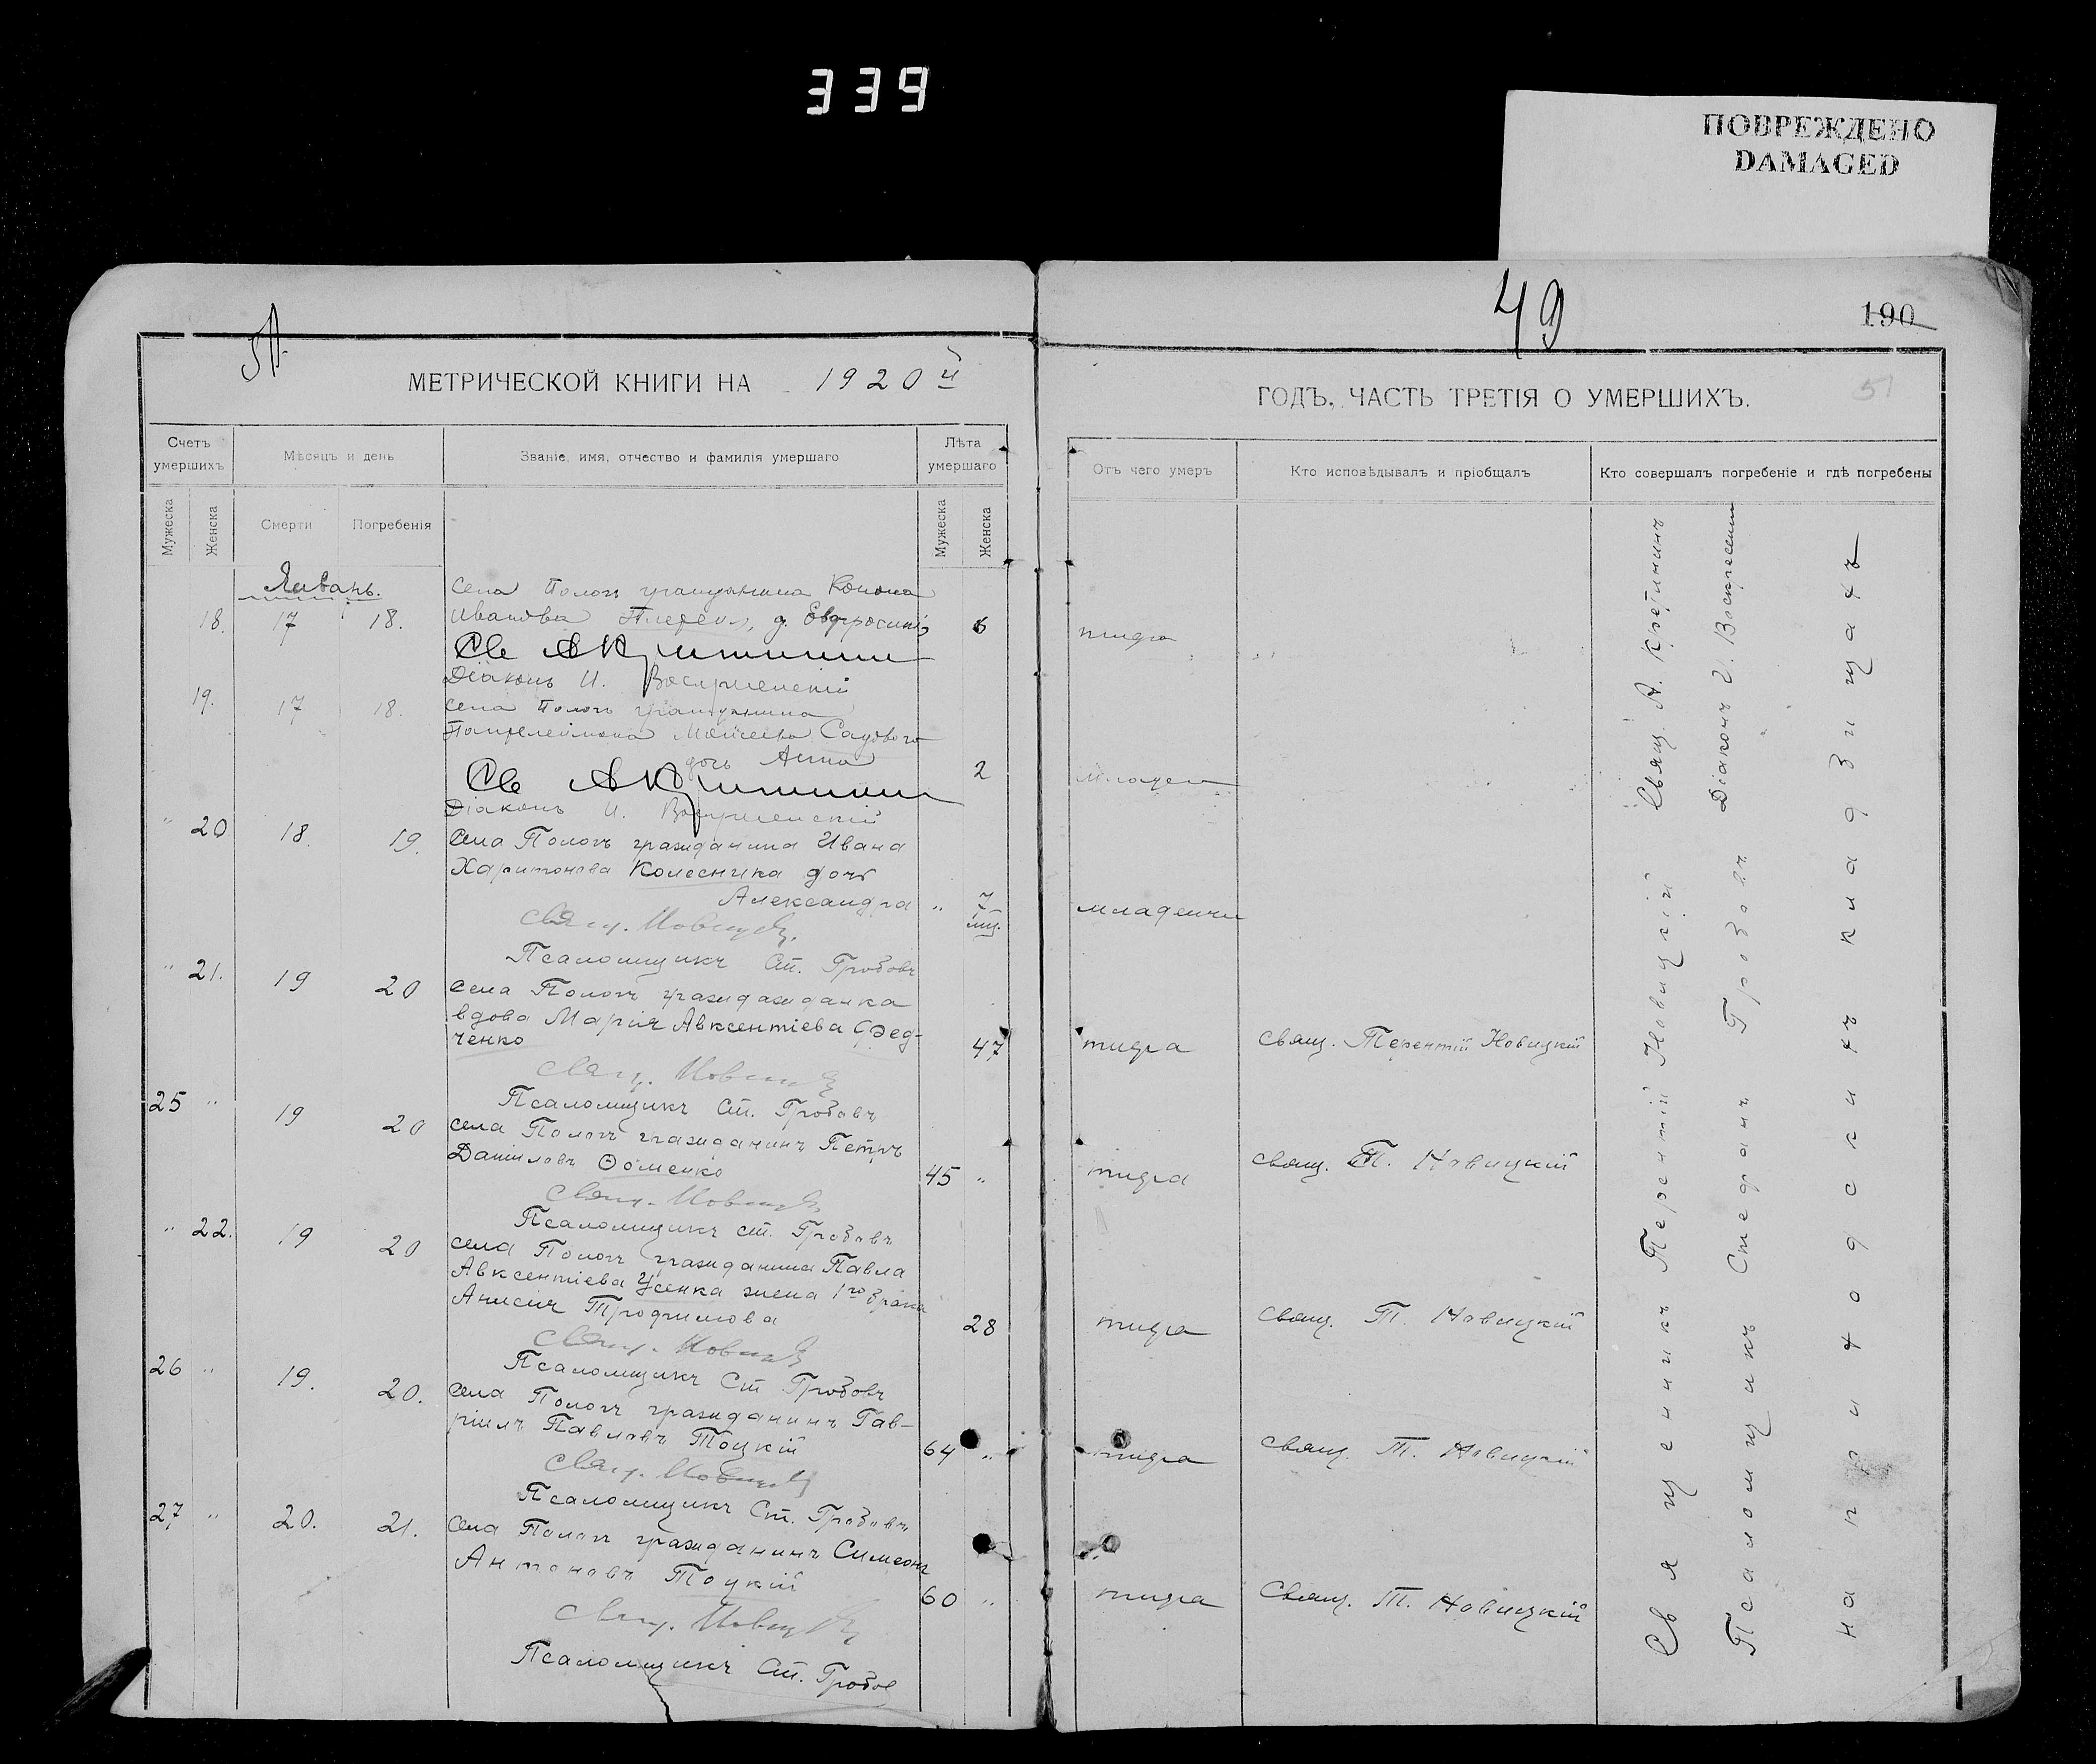 339
ПОВРЕЖДЕНО
DAMAGED
49
190
51
МЕТРИЧЕСКОЙ КНИГИ НА 1920 й
ГОДЪ, ЧАСТЬ ТРЕТІЯ О УМЕРШИХЪ.
Счетъ умершихъ
Мѣсяцъ и день
Званіе, имя, отчество и фамилія умершаго
Лѣта умершаго
Отъ чего умеръ
Кто исповѣдывалъ и пріобщалъ
Кто совершалъ погребеніе и гдѣ погребены
Мужеска
Женска
Смерти
Погребенія
Мужеска
Женска
Январь.
села Пологъ гражданина Конона
18. 17 18. Иванова д. Евфросинія 6 тифа
Св А Кретининъ
Діаконъ И. Воскресенскій
19. 17 18. села Пологъ гражданина
Пантелеймона Моисеева Садового
дочь Анна 2 младен
Св А Кретининъ
Діаконъ И. Воскресенскій
" 20 18. 19. села Пологъ гражданина Ивана
Харитонова Колесника дочь
Александра " 7 мц. младенч
свящ. Новицкій
Псаломщикъ Ст. Грозовъ
" 21. 19 20 села Пологъ граждажданка
вдова Марія Авксентіева Фед-
ченко 47 тифа свящ. Терентій Новицкій
свящ. Новицкій
Псаломщикъ Ст. Грозовъ
25 " 19 20 села Пологъ гражданинъ Петръ
Даниловъ Ѳоменко 45 " тифа свящ. Т. Новицкій
свящ. Новицкій
Псаломщикъ Ст. Грозовъ
" 22. 19 20 села Пологъ гражданина Павла
Авксентіева Усенка жена 1го брака
Анисія Трофимова 28 тифа свящ. Т. Новицкій
свящ. Новицкій
Псаломщикъ Ст Грозовъ
26 " 19. 20. села Пологъ гражданинъ Гав-
ріилъ Павловъ Тоцкій 64 " тифа свящ. Т. Новицкій
свящ. Новицкій
Псаломщикъ Ст. Грозовъ
27 " 20. 21. села Пологъ гражданинъ Симеонъ
Антоновъ Тоцкій 60 " тифа Свящ. Т. Новицкій
свящ. Новицкій
Псаломщикъ Ст. Грозов
Священникъ Терентій Новицкій Свящ. А. Кретининъ
Псаломщикъ Стефанъ Грозовъ Діаконъ И. Воскресенск
на приходскихъ кладбищахъ